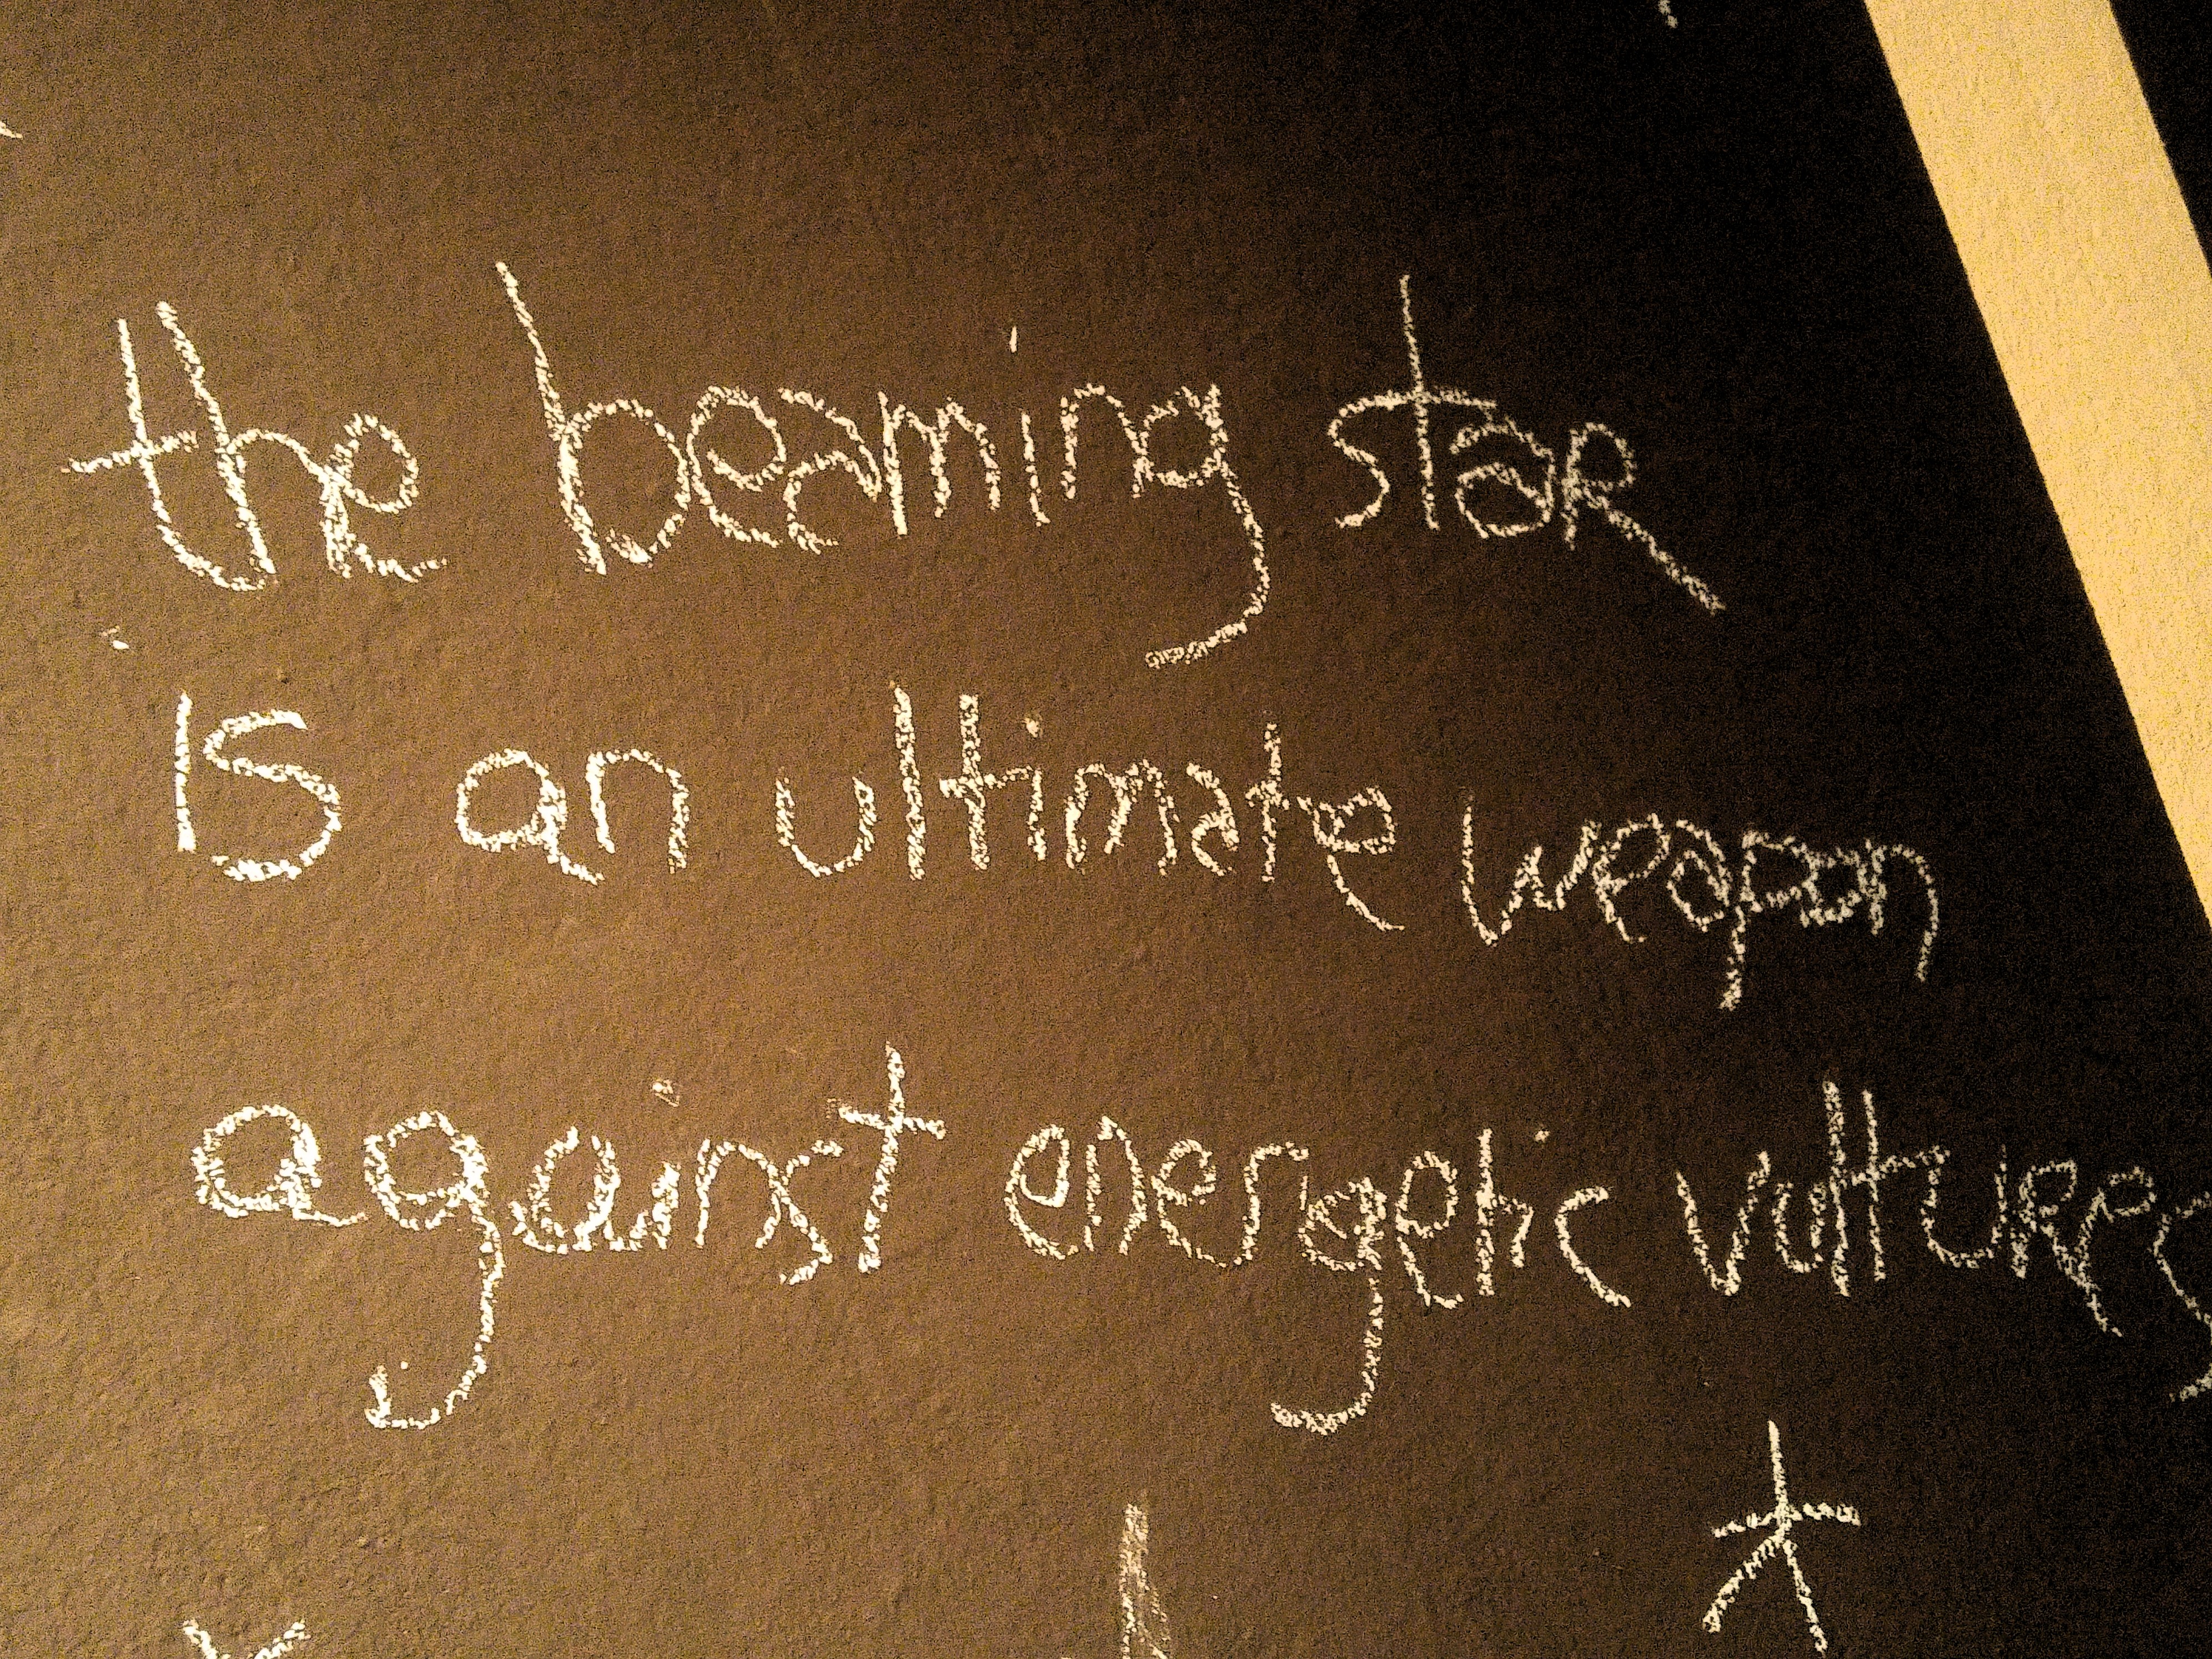 the beaming star
is an ultimate weapon
against energetic vultures